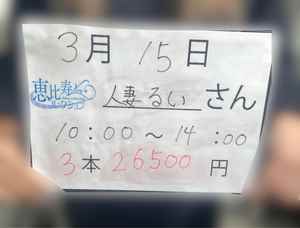 3月 15日
恵比寿
人妻るい さん
10:00～14:00
3本 26500 円